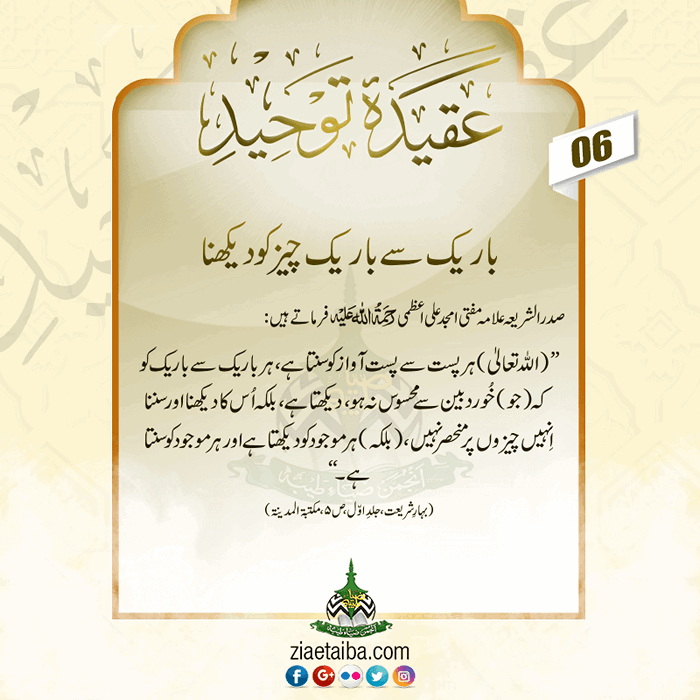 عقیدۃ توحید
06
باریک سے باریک چیز کو دیکھنا
صدر الشریعہ علامہ مفتی امجد علی اعظمی رحمۃ اللہ علیہ فرماتے ہیں:
”(اللہ تعالیٰ) ہر پست سے پست آواز کو سنتا ہے، ہر باریک سے باریک کو
کہ (جو) خُوردبین سے محسوس نہ ہو، دیکھتا ہے، بلکہ اُس کا دیکھنا اور سننا
اِنہیں چیزوں پر منحصر نہیں، (بلکہ) ہر موجود کو دیکھتا ہے اور ہر موجود کو سنتا
ہے۔“
(بہارِ شریعت، جلد اوّل، ص ۵، مکتبۃ المدینۃ)
انجمن ضیاء طیبہ
ziaetaiba.com